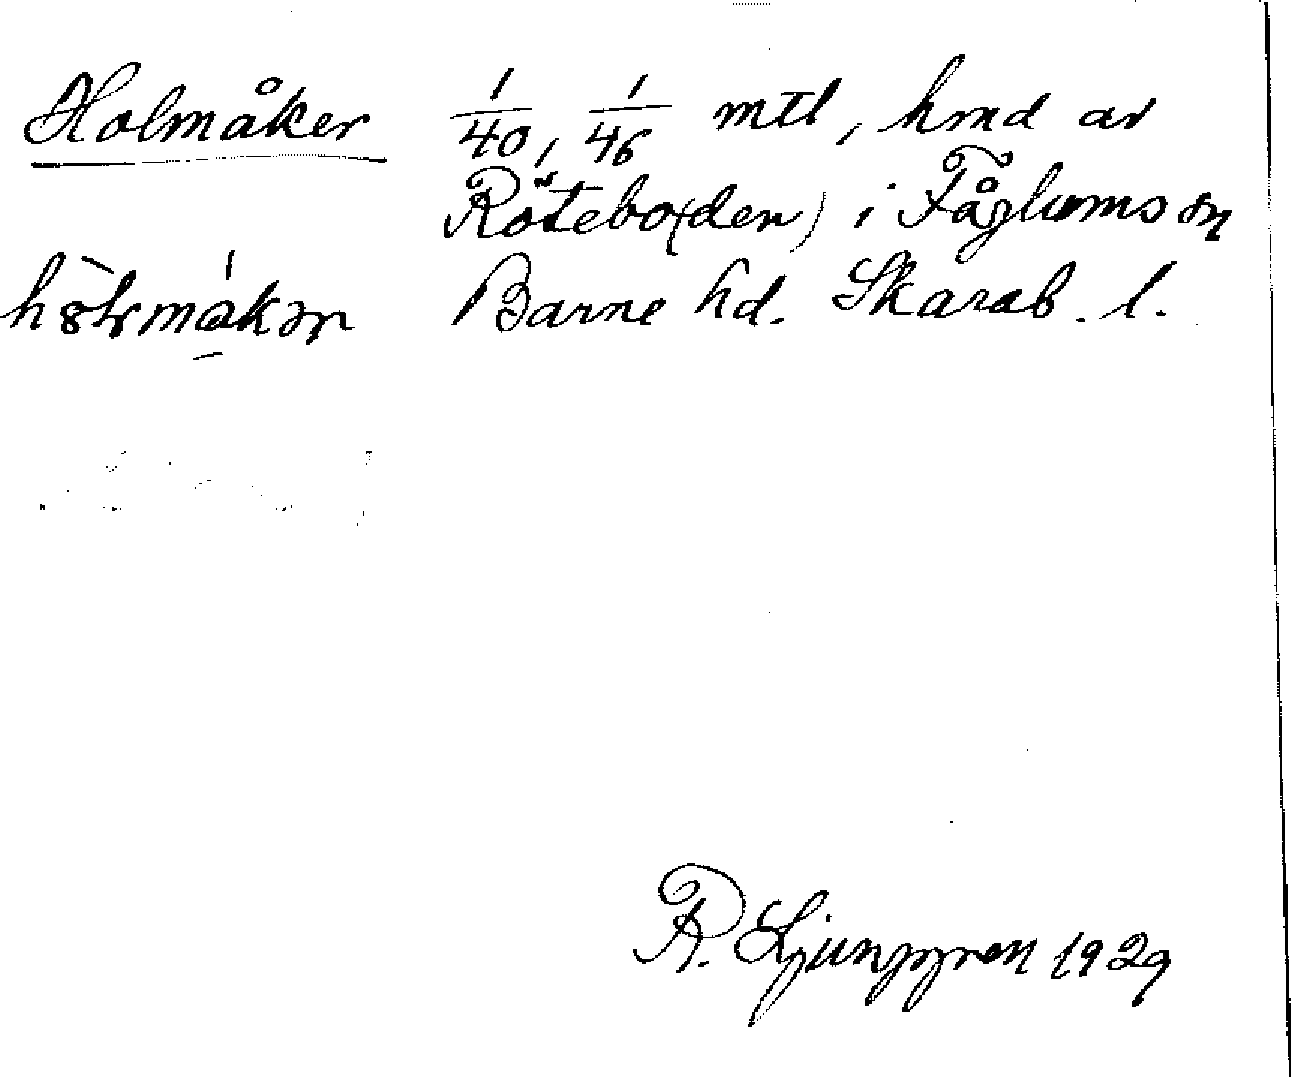 Holmåker 1/40, 1/46 mtl, hmd av
Rötebo(den) i Fåglums sn
Barne hd. Skarab. l.
R. Ljunggren 1929